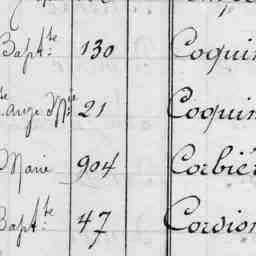 Bapt.te 130 Coquin
21 Coquin
Marie 904 Corbiér
Bapt.te 47 Cordion